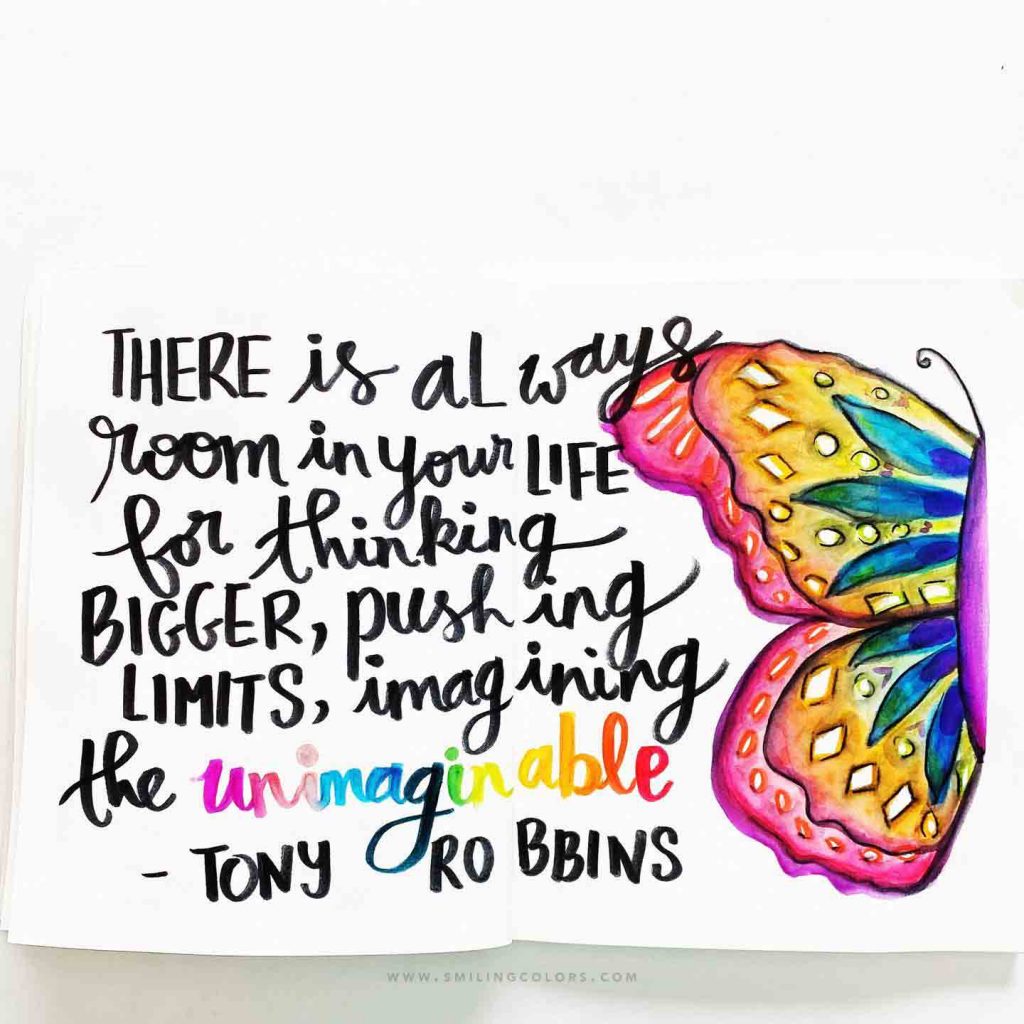 THERE is aLways
room in your LIFE
for thinking
BIGGER, pushing
LIMITS, imagining
the unimaginable
- TONY ROBBINS
WWW.SMILINGCOLORS.COM